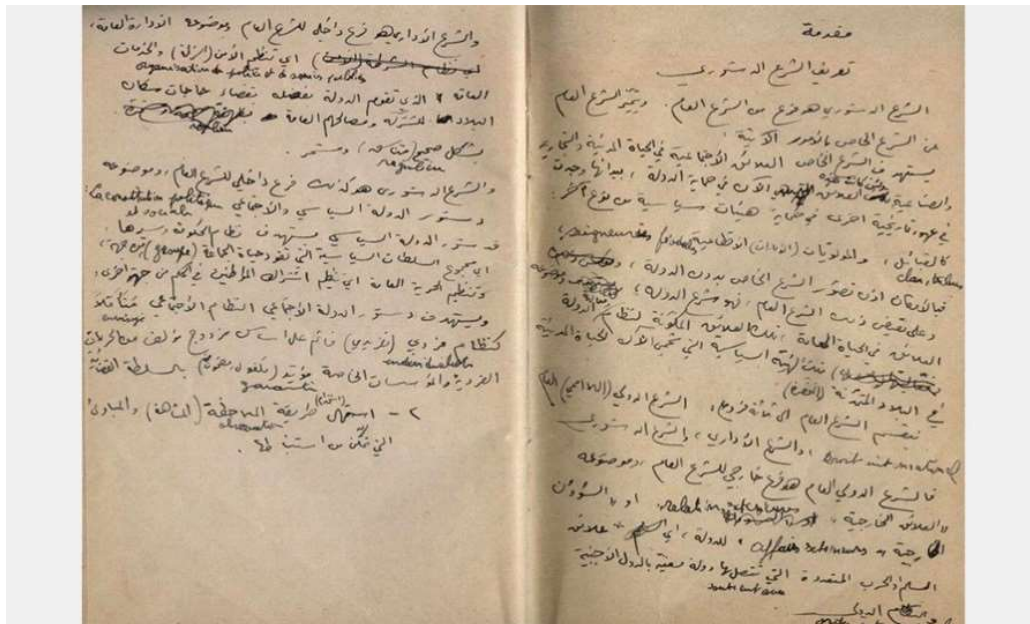 مقدمة
تعريف الشرع الدستوري
الشرع الدستوري هو فرع من الشرع العام. ويتميّز الشرع العام
عن الشرع الخاص بالأمور الآتية:
يستهدف الشرع الخاص العلائق الاجتماعية في الحياة المدنية والتجارية
والصناعية العلائق الآن في حماية الدولة، بيد أنها وجدت
في عهود تاريخية أخرى في حماية هيئات سياسية من نوع آخر:
كالقبائل، والمولويات الإقطاعية
فبالإمكان إذن تصوّر الشرع الخاص بدون الدولة،
وعلى نقيض ذلك الشرع العام، فهو شرع الدولة،
العلائق في الحياة العامة، تلك العلائق المكوّنة لنظام الدولة
تلك الهيئة السياسية التي تحمي الآن الحياة المدنية
في البلاد المتمدّنة
ينقسم الشرع العام إلى ثلاثة فروع: الشرع الدولي العام
والشرع الإداري، والشرع الدستوري
فالشرع الدولي العام هو فرع خارجي للشرع العام، وموضوعه
«العلائق الخارجية» أو «الشؤون
الخارجية» للدولة، أي علائق
السلم والحرب المتعددة التي تتصل بها دولة معينة بالدول الأجنبية
الدولي
والشرع الإداري هو فرع داخلي للشرع العام وموضوعه الإدارة العامة،
أي تنظيم الأمن والخدمات
العامة التي تقوم الدولة بفضله بقضاء حاجات سكان
البلاد المشتركة ومصالحهم العامة
بشكل صحيح ومستمر.
والشرع الدستوري هو كذلك فرع داخلي للشرع العام، وموضوعه
دستور الدولة السياسي والاجتماعي
et sociale
فدستور الدولة السياسي يستهدف نظام الحكومة وسيرها.
أي مجموع السلطات السياسية التي تقود حياة الجماعة (groupe) من جهة،
وتنظيم الحرية العامة أي تنظيم اشتراك المواطنين في الحكم من جهة أخرى.
ويستهدف دستور الدولة الاجتماعي النظام الاجتماعي
كنظام فردي قائم على أساس مزدوج مؤلف من الحريات
الفردية والمؤسسات الخاصة بالسلطة القضائية
٢ - طريقة الملاحظة (المشاهدة) والمبادئ
التي تمكّن من استنباطها.